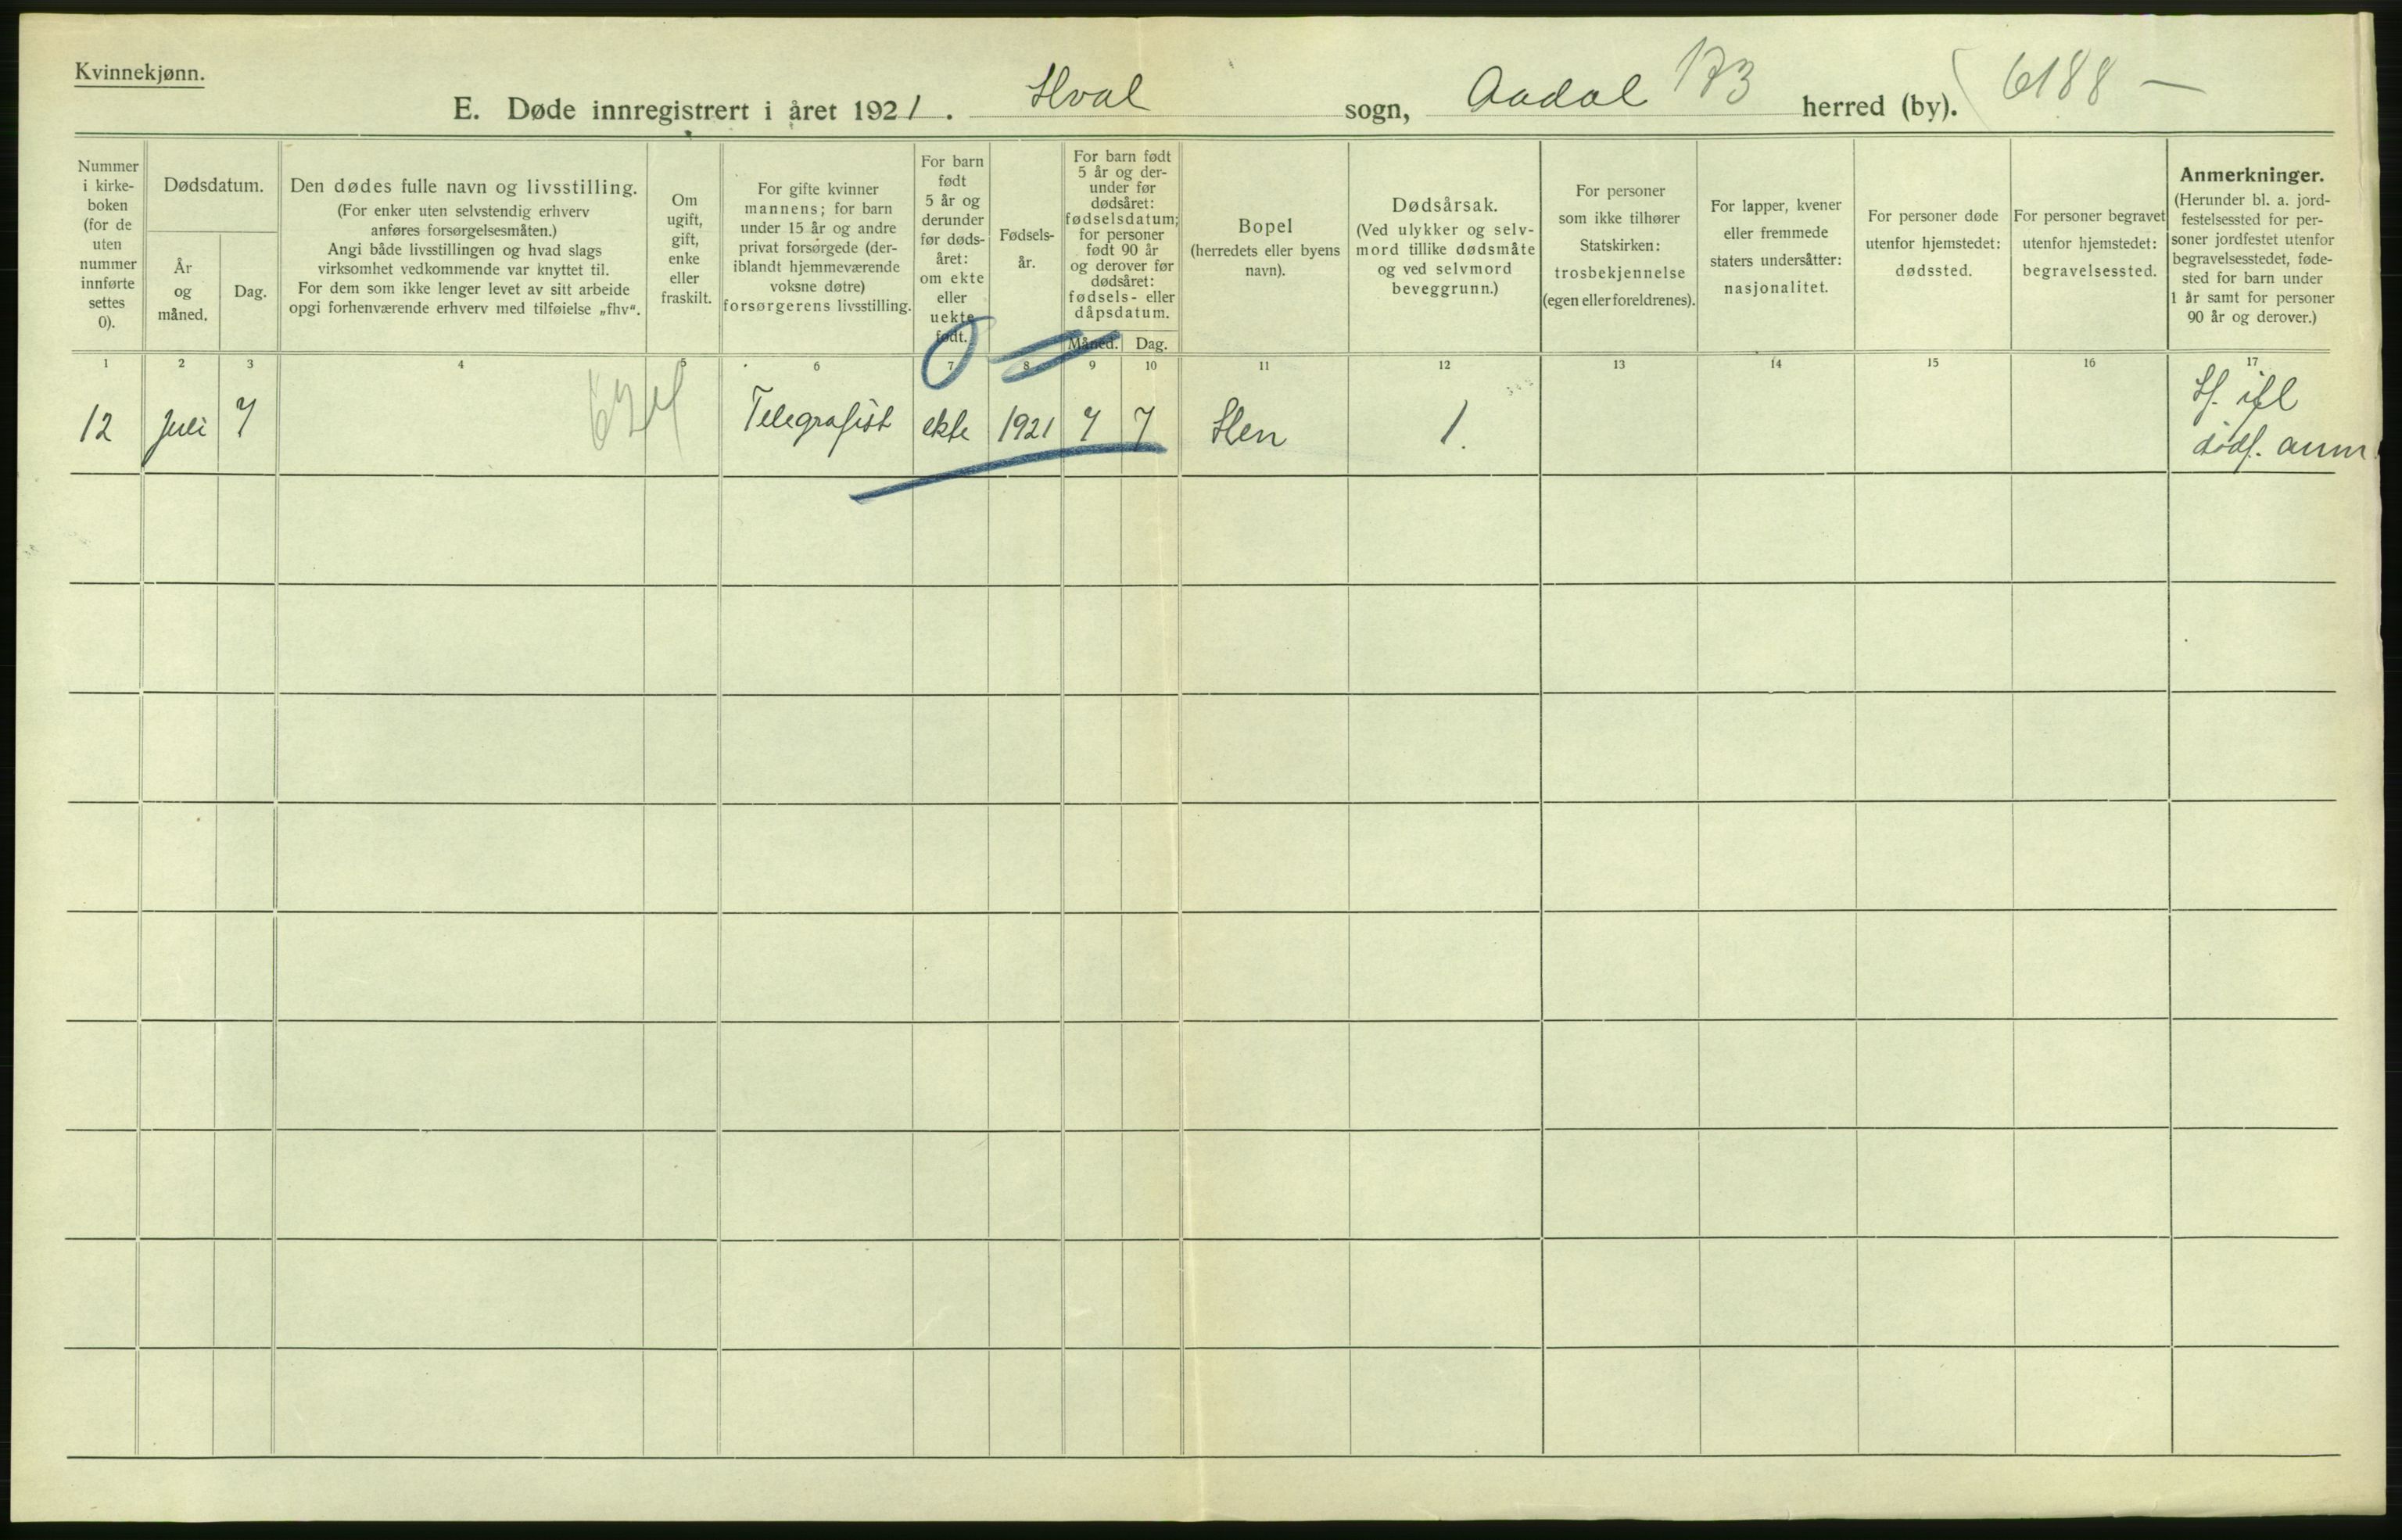 Kvinnekjønn.
E. Døde innregistrert i året 1921. Hval sogn, Aadal 173 herred (by). 6188 —
Nummer
i kirke-
boken
(for de
uten
nummer
innførte
settes
0).
Dødsdatum.
År
og
måned.
Dag.
Den dødes fulle navn og livsstilling.
(For enker uten selvstendig erhverv
anføres forsørgelsesmåten.)
Angi både livsstillingen og hvad slags
virksomhet vedkommende var knyttet til.
For dem som ikke lenger levet av sitt arbeide
opgi forhenværende erhverv med tilføielse „fhv“.
Om
ugift,
gift,
enke
eller
fraskilt.
For gifte kvinner
mannens; for barn
under 15 år og andre
privat forsørgede (der-
iblandt hjemmeværende
voksne døtre)
forsørgerens livsstilling.
For barn
født
5 år og
derunder
før døds-
året:
om ekte
eller
uekte
født.
Fødsels-
år.
For barn født
5 år og der-
under før
dødsåret:
fødselsdatum;
for personer
født 90 år
og derover før
dødsåret:
fødsels- eller
dåpsdatum.
Måned. Dag.
Bopel
(herredets eller byens
navn).
Dødsårsak.
(Ved ulykker og selv-
mord tillike dødsmåte
og ved selvmord
beveggrunn.)
For personer
som ikke tilhører
Statskirken:
trosbekjennelse
(egen eller foreldrenes).
For lapper, kvener
eller fremmede
staters undersåtter:
nasjonalitet.
For personer døde
utenfor hjemstedet:
dødssted.
For personer begravet
utenfor hjemstedet:
begravelsessted.
Anmerkninger.
(Herunder bl. a. jord-
festelsessted for per-
soner jordfestet utenfor
begravelsesstedet, føde-
sted for barn under
1 år samt for personer
90 år og derover.)
1 2 3 4 5 6 7 8 9 10 11 12 13 14 15 16 17
12 Juli 7 Telegrafist ekte 1921 7 7 Hen 1.
dødf. anm